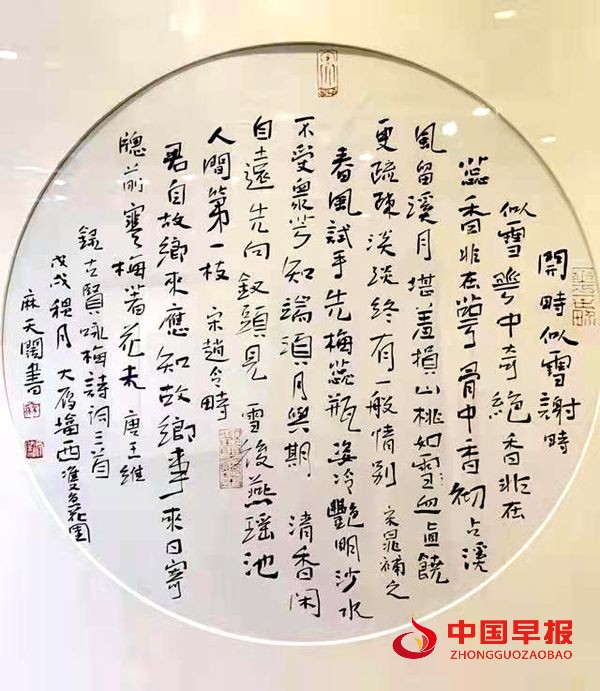 開時似雪謝時
似雪花中奇絶香非在
蕊香非在萼骨中香徹占溪
風留溪月堪羞損山桃如雪血直饒
更疏疏淡淡終有一般情别 宋晁補之
春風試手先梅蕊瓶姿冷艷明沙水
不受衆芳知端須月與期 清香閑
自遠先向釵頭見 雪後燕瑶池
人間第一枝 宋趙令畤
君自故鄉來應知故鄉事來日寄
牕前寒梅著花未 唐王維
録古賢咏梅詩詞三首
戊戌月大雁塔西花園
麻天闊書
中国早报
ZHONGGUOZAOBAO